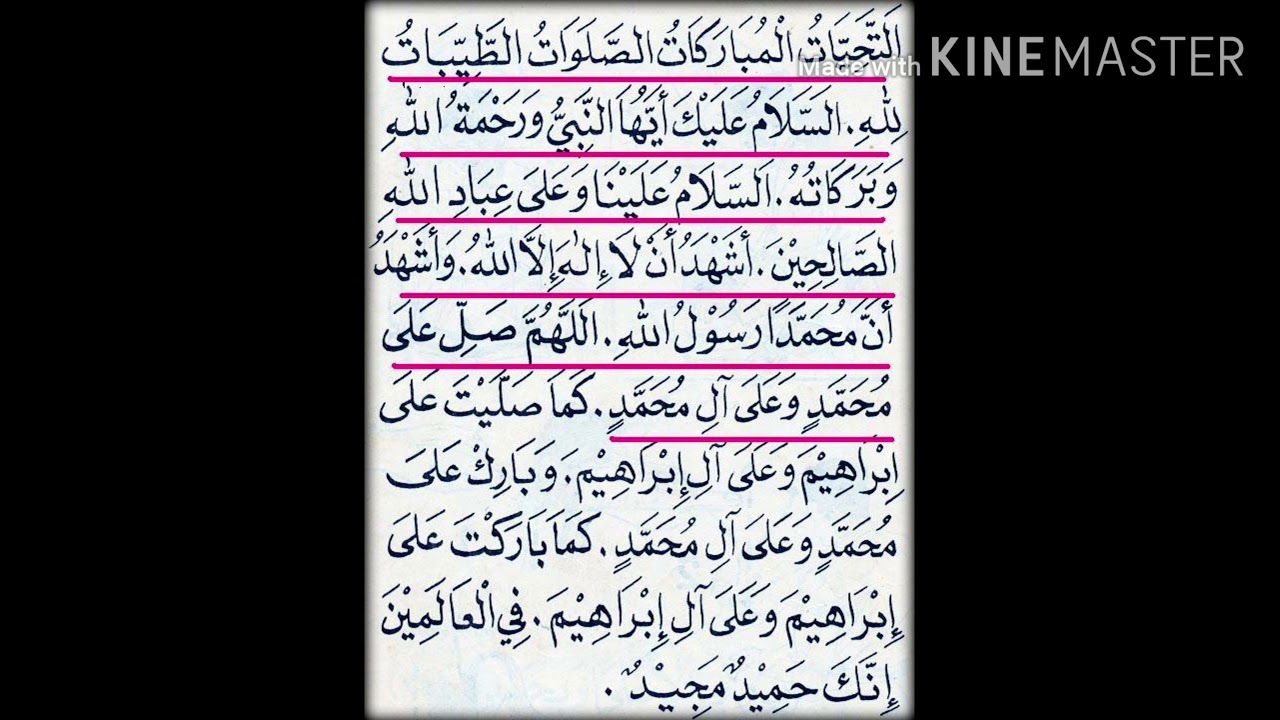 اَلتَّحِيَّاتُ الْمُبَارَكَاتُ الصَّلَوَاتُ الطَّيِّبَاتُ
Made with KINEMASTER
لِلّٰهِ. السَّلَامُ عَلَيْكَ أَيُّهَا النَّبِيُّ وَرَحْمَةُ اللهِ
وَبَرَكَاتُهُ. اَلسَّلَامُ عَلَيْنَا وَعَلَى عِبَادِ اللهِ
الصَّالِحِيْنَ. أَشْهَدُ أَنْ لَا إِلٰهَ إِلَّا اللهُ. وَأَشْهَدُ
أَنَّ مُحَمَّدًا رَسُوْلُ اللهِ. اَللّٰهُمَّ صَلِّ عَلَى
مُحَمَّدٍ وَعَلَى آلِ مُحَمَّدٍ. كَمَا صَلَّيْتَ عَلَى
إِبْرَاهِيْمَ وَعَلَى آلِ إِبْرَاهِيْمَ. وَبَارِكْ عَلَى
مُحَمَّدٍ وَعَلَى آلِ مُحَمَّدٍ. كَمَا بَارَكْتَ عَلَى
إِبْرَاهِيْمَ وَعَلَى آلِ إِبْرَاهِيْمَ. فِي الْعَالَمِيْنَ
إِنَّكَ حَمِيْدٌ مَجِيْدٌ.